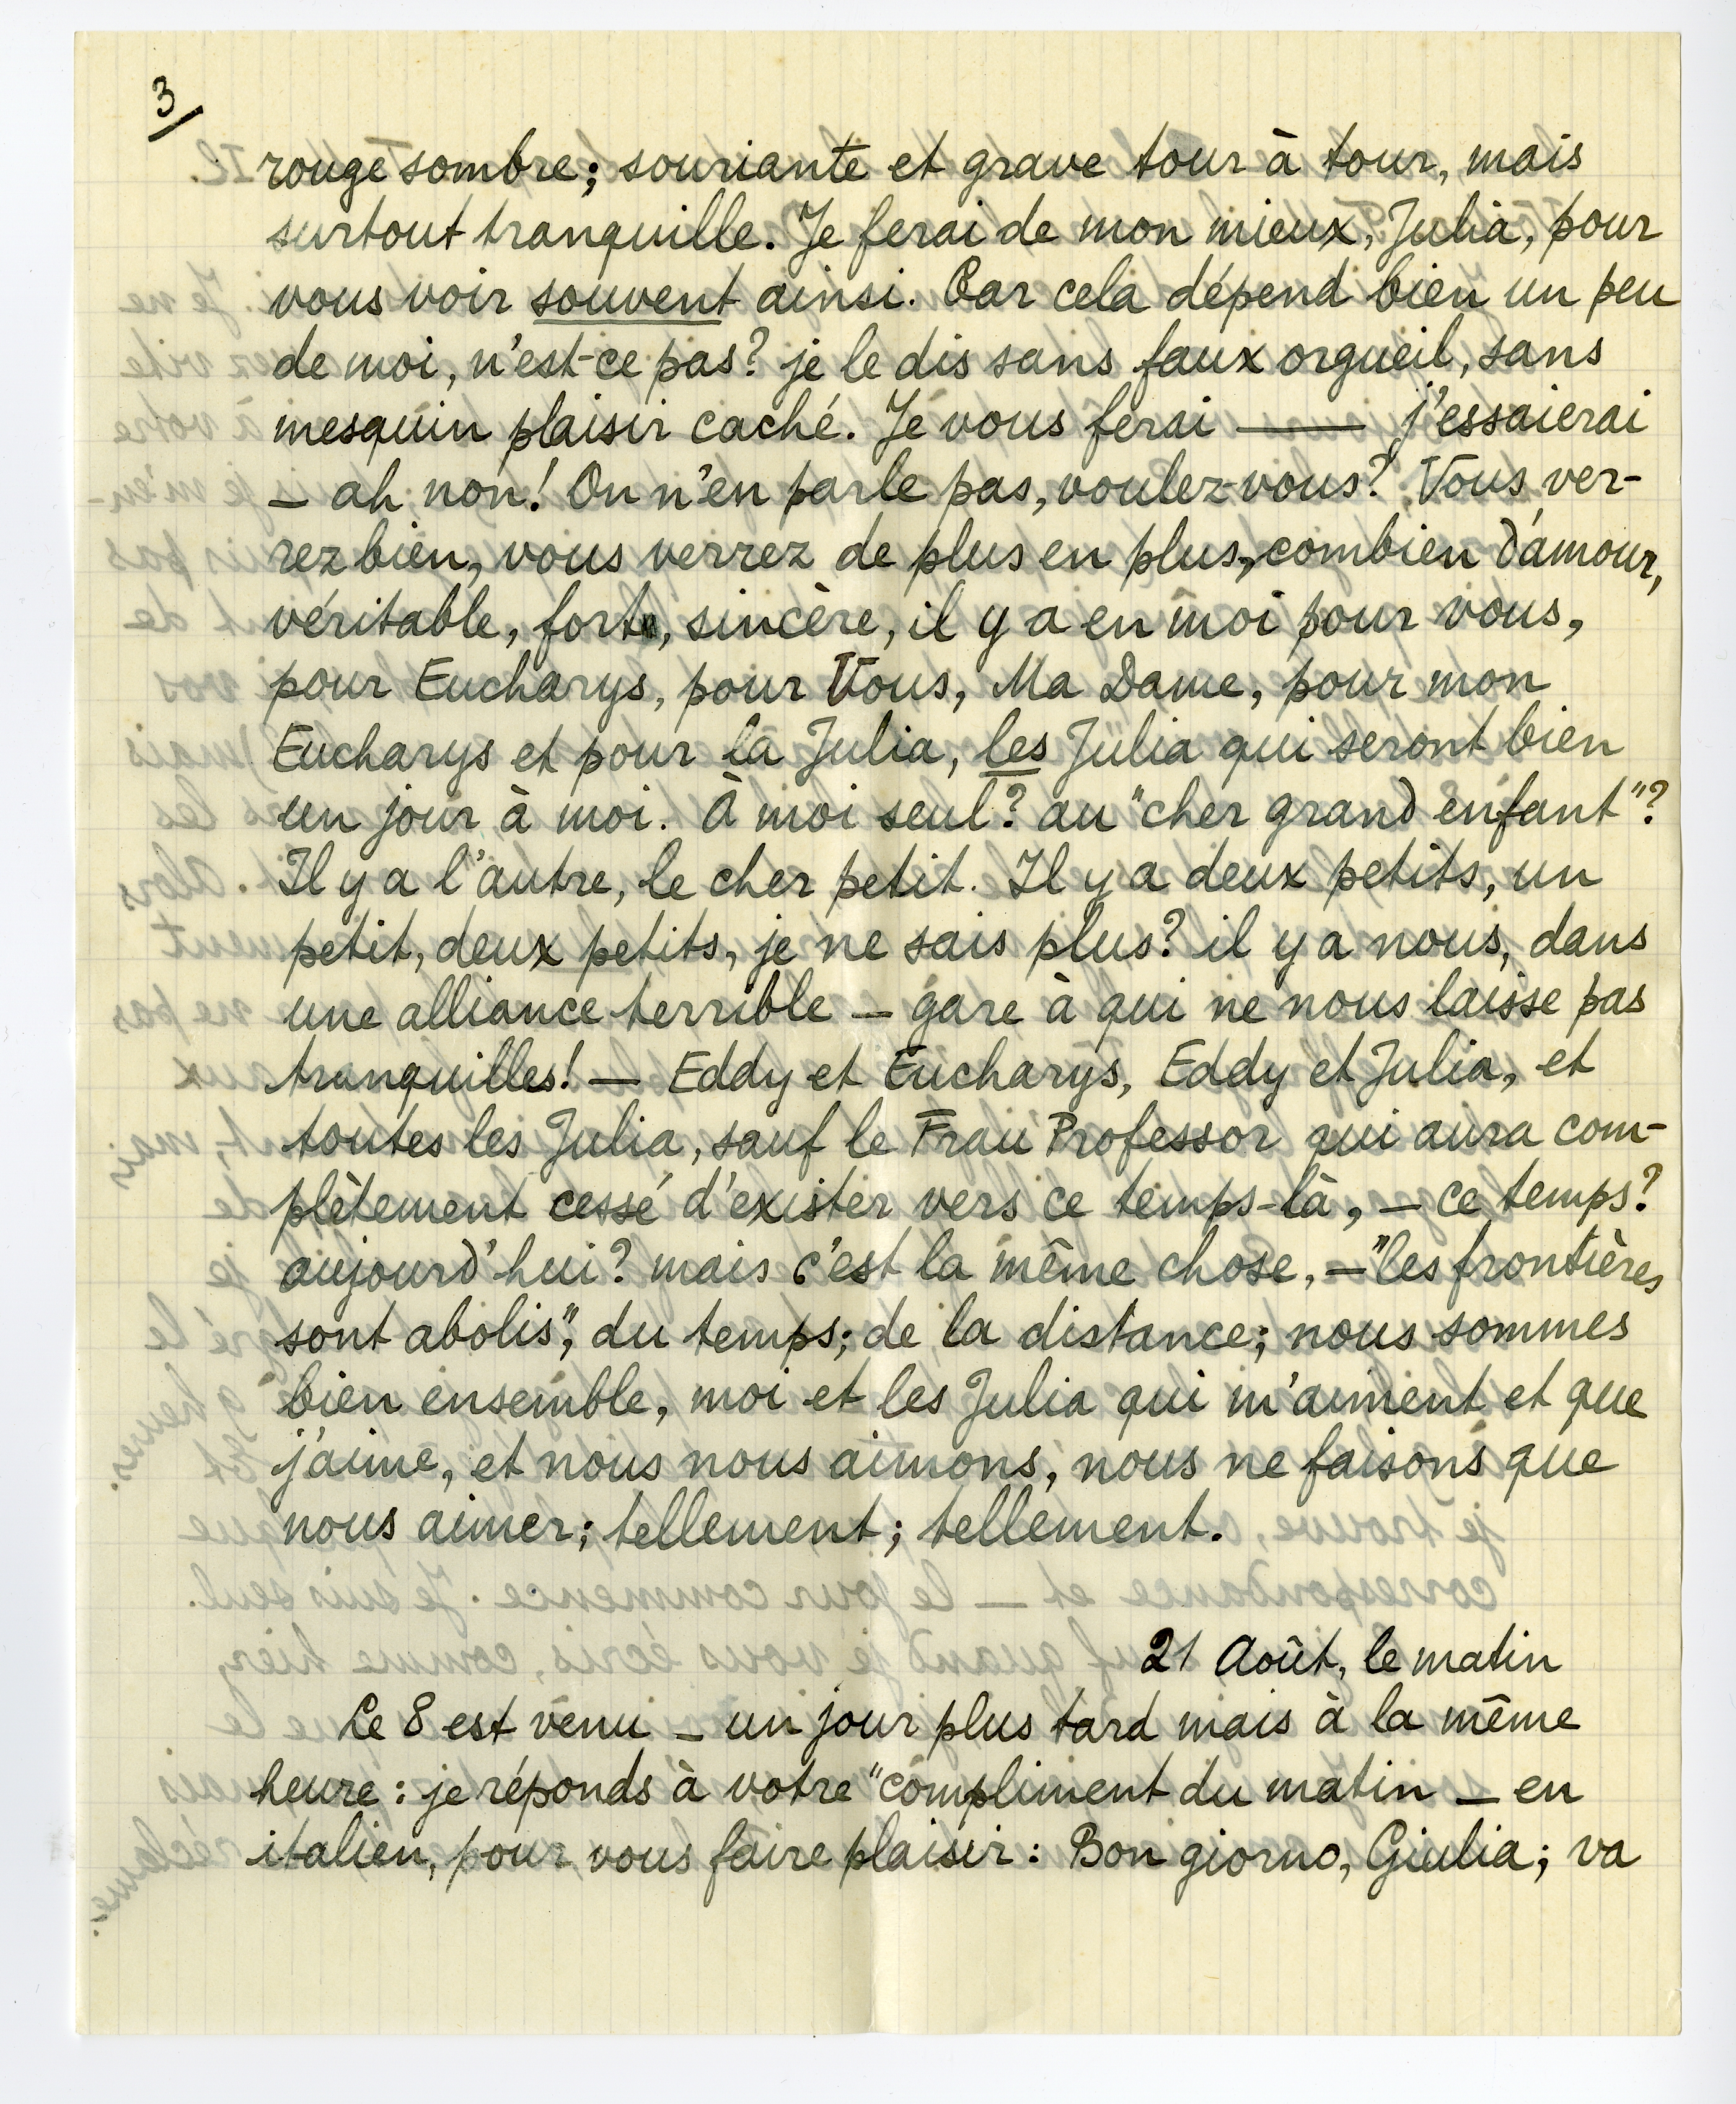 3/
rouge sombre; souriante et grave tour à tour, mais
surtout tranquille. Je ferai de mon mieux, Julia, pour
vous voir souvent ainsi. Car cela dépend bien un peu
de moi, n'est-ce pas? je le dis sans faux orgueil, sans
mesquin plaisir caché. Je vous ferai —— j'essaierai
— ah non! On n'en parle pas, voulez-vous? Vous ver-
rez bien, vous verrez de plus en plus, combien d'amour,
véritable, fort, sincère, il y a en moi pour vous,
pour Eucharys, pour Vous, Ma Dame, pour mon
Eucharys et pour la Julia, les Julia qui seront bien
un jour à moi. À moi seul? au "cher grand enfant"?
Il y a l'autre, le cher petit. Il y a deux petits, un
petit, deux petits, je ne sais plus? il y a nous, dans
une alliance terrible — gare à qui ne nous laisse pas
tranquilles! — Eddy et Eucharys, Eddy et Julia, et
toutes les Julia, sauf le Frau Professor qui aura com-
plètement cessé d'exister vers ce temps-là, — ce temps?
aujourd'hui? mais c'est la même chose, — "les frontières
sont abolis", du temps; de la distance; nous sommes
bien ensemble, moi et les Julia qui m'aiment et que
j'aime, et nous nous aimons, nous ne faisons que
nous aimer; tellement; tellement.
21 Août, le matin
Le 8 est venu — un jour plus tard mais à la même
heure: je réponds à votre "compliment du matin — en
italien, pour vous faire plaisir: Bon giorno, Giulia; va